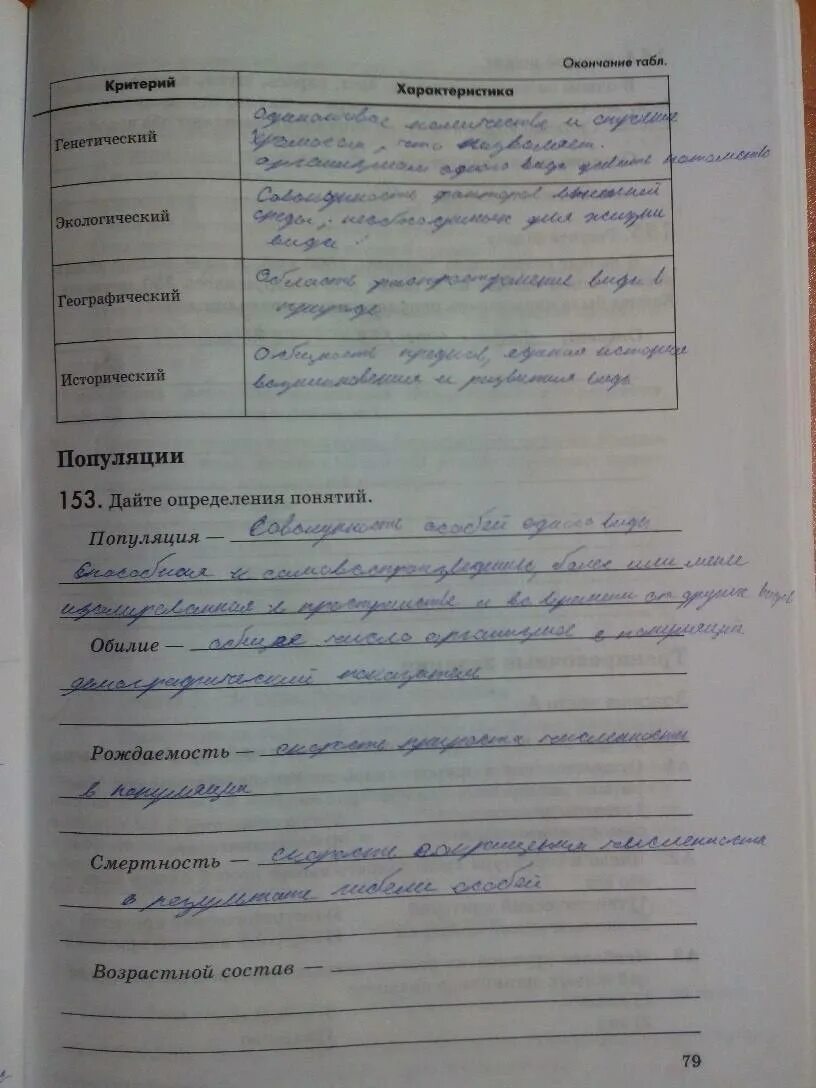 Окончание табл.
Критерий Характеристика
Генетический
Одинаковое количество и строение
хромосом, что позволяет
организмам одного вида давать потомство
Экологический
Совокупность факторов внешней
среды, необходимых для жизни
вида
Географический
Область распространение вида в
природе
Исторический
Общность предков, единая история
возникновения и развития вида
Популяции
153. Дайте определения понятий.
Популяция — Совокупность особей одного вида
способная к самовоспроизведению, более или мене
изолированная в пространстве и во времени от других видов
Обилие — общее число организмов в популяции
демографический показатель
Рождаемость — скорость прироста численности
в популяции
Смертность — скорость сокращения численности
в результате гибели особей
Возрастной состав —
79